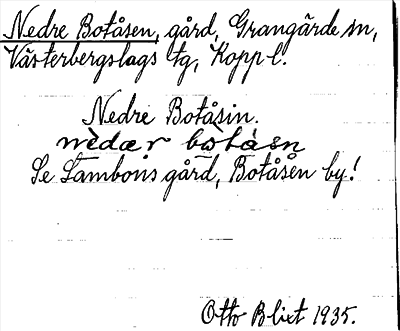 Nedre Botåsen, gård, Grangärde sn,
Västerbergslags tg, Kopp l.
Nedre Botåsin.
nèdær bò̀tåsen
Se Lambons gård, Botåsen by!
Otto Blixt 1935.